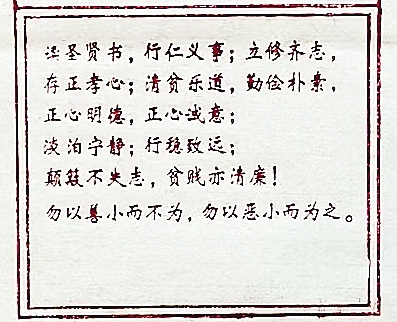 读圣贤书，行仁义事；立修齐志，
存正孝心；清贫乐道，勤俭朴素，
正心明德，正心诚意；
淡泊宁静；行稳致远；
颠簸不失志，贫贱亦清廉！
勿以善小而不为，勿以恶小而为之。